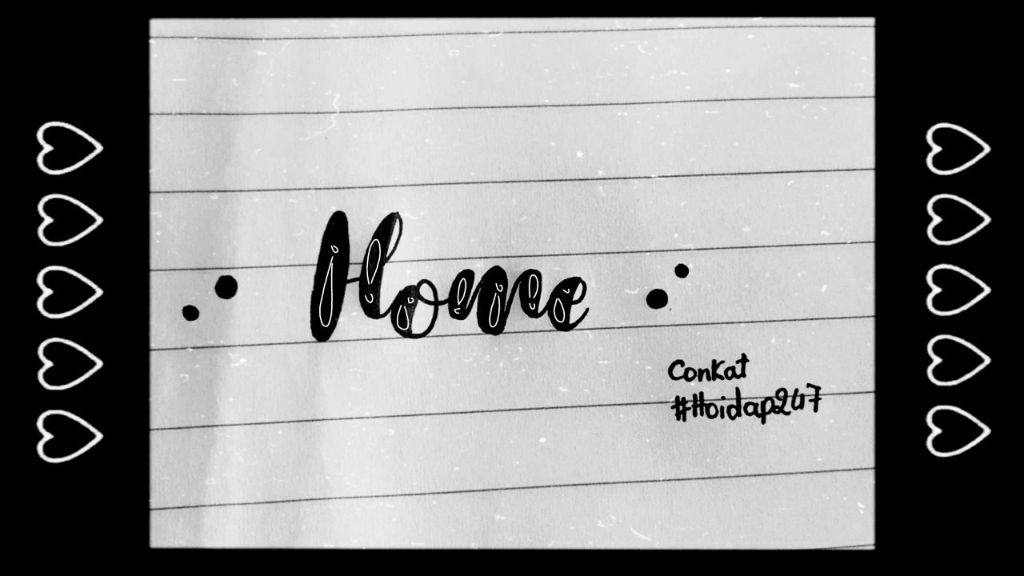 Home
ConKat
#Hoidap247